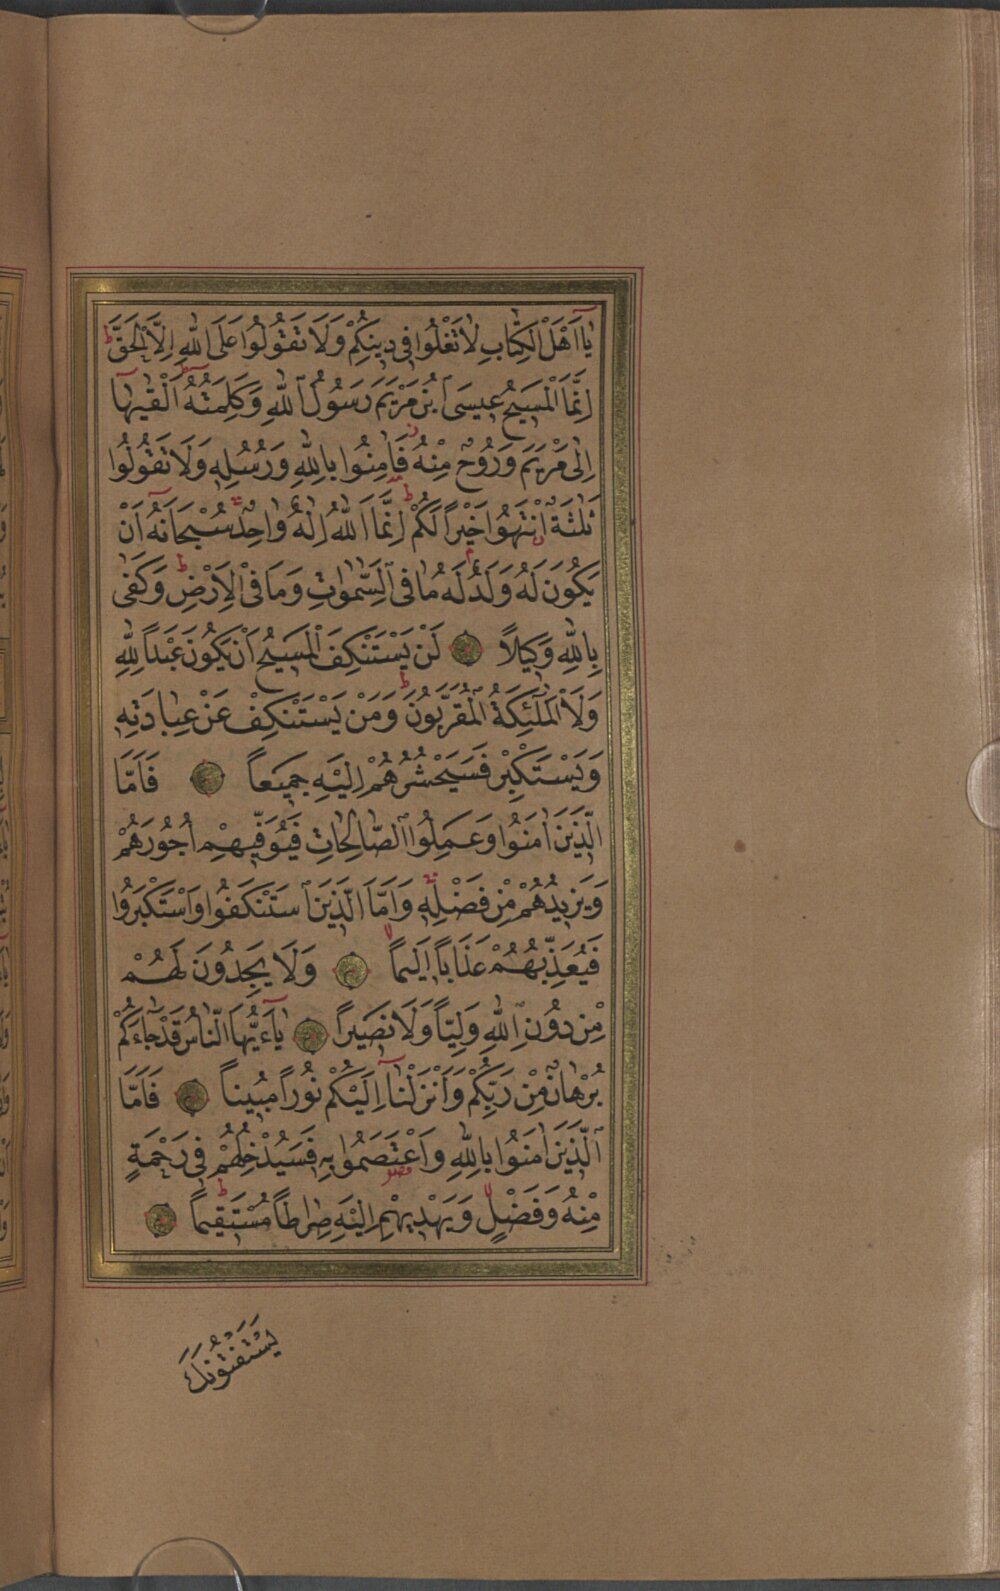 يَا اَهْلَ الْكِتَابِ لَا تَغْلُوا فِى دِينِكُمْ وَلَا تَقُولُوا عَلَى اللّٰهِ اِلَّا الْحَقَّ ط
اِنَّمَا الْمَسِيحُ عِيسَى ابْنُ مَرْيَمَ رَسُولُ اللّٰهِ وَكَلِمَتُهُ اَلْقٰيهَا
اِلٰى مَرْيَمَ وَرُوحٌ مِنْهُ فَاٰمِنُوا بِاللّٰهِ وَرُسُلِهِ وَلَا تَقُولُوا
ثَلٰثَةٌ اِنْتَهُوا خَيْراً لَكُمْ ط اِنَّمَا اللّٰهُ اِلٰهٌ وَاحِدٌ سُبْحَانَهُ اَنْ
يَكُونَ لَهُ وَلَدٌ م لَهُ مَا فِى السَّمٰوَاتِ وَمَا فِى الْاَرْضِ ط وَكَفٰى
بِاللّٰهِ وَكِيلاً لَنْ يَسْتَنْكِفَ الْمَسِيحُ اَنْ يَكُونَ عَبْداً لِلّٰهِ
وَلَا الْمَلٰئِكَةُ الْمُقَرَّبُونَ ط وَمَنْ يَسْتَنْكِفْ عَنْ عِبَادَتِهِ
وَيَسْتَكْبِرْ فَسَيَحْشُرُهُمْ اِلَيْهِ جَمِيعاً فَاَمَّا
الَّذِينَ اٰمَنُوا وَعَمِلُوا الصَّالِحَاتِ فَيُوَفِّيهِمْ اُجُورَهُمْ
وَيَزِيدُهُمْ مِنْ فَضْلِهِ وَاَمَّا الَّذِينَ اسْتَنْكَفُوا وَاسْتَكْبَرُوا
فَيُعَذِّبُهُمْ عَذَاباً اَلِيماً لا وَلَا يَجِدُونَ لَهُمْ
مِنْ دُونِ اللّٰهِ وَلِيّاً وَلَا نَصِيراً يَا ءَيُّهَا النَّاسُ قَدْ جَاءَكُمْ
بُرْهَانٌ مِنْ رَبِّكُمْ وَاَنْزَلْنَا اِلَيْكُمْ نُوراً مُبِيناً فَاَمَّا
الَّذِينَ اٰمَنُوا بِاللّٰهِ وَاعْتَصَمُوا بِهِ فَسَيُدْخِلُهُمْ فِى رَحْمَةٍ
مِنْهُ وَفَضْلٍ لا وَيَهْدِيهِمْ اِلَيْهِ صِرَاطاً مُسْتَقِيماً ط
يَسْتَفْتُونَكَ